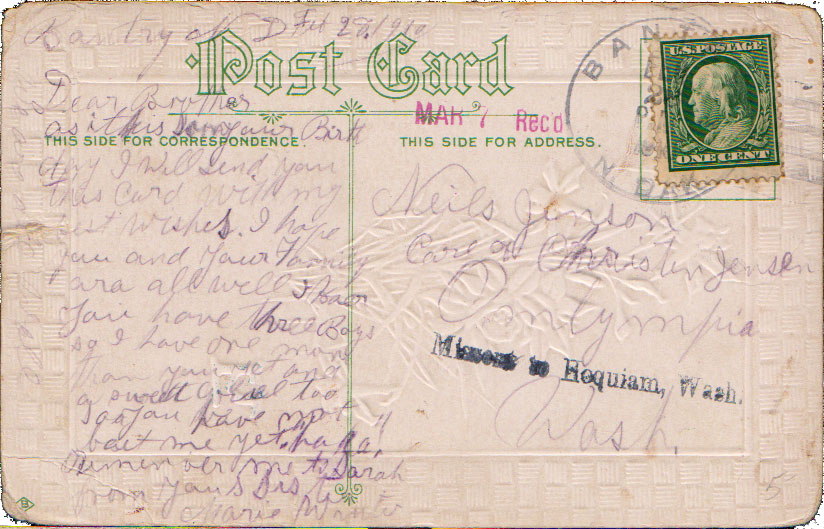 Bantry N D Feb 28/1910
Post Card
BANT
N. DA
U.S. POSTAGE
ONE CENT
MAR 7 Recd
THIS SIDE FOR CORRESPONDENCE.
THIS SIDE FOR ADDRESS.
Dear Brother
as it is your Birth
day I will send you
this card with my
best wishes. I hope
you and your Family
ara all well I haer
you have three Boys
so I have one more
than you yet and
a sweet girl too
so you have not
baet me yet. ha ha,
Rimember me to Sarah
from Your Sis
Marie
Neils Jenson
Care of Christen Jensen
Omlympia
Missent to Hoquiam, Wash.
Wash.